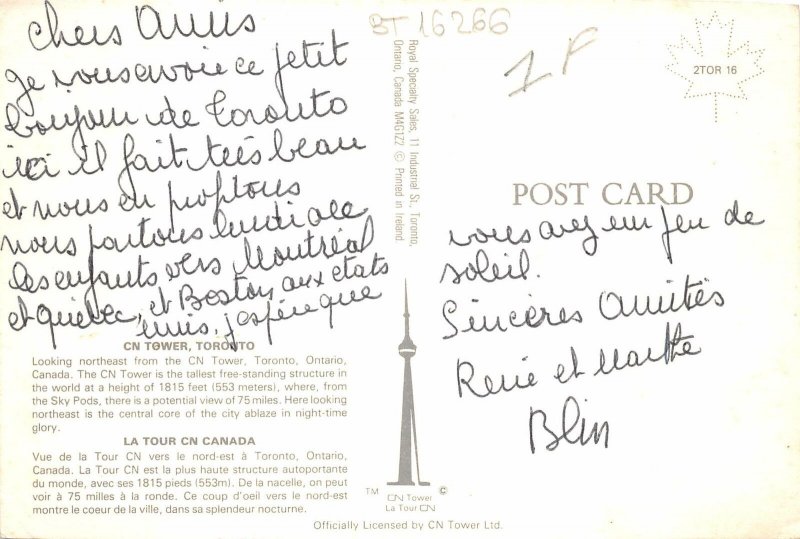 chers Amis
je vous envoie ce petit
bonjour de Toronto
ici il fait très beau
et nous en profitons
nous partons lundi avec
les enfants vers Montréal
et quebec, et Boston aux etats
unis. j'espère que
CN TOWER, TORONTO
Looking northeast from the CN Tower, Toronto, Ontario,
Canada. The CN Tower is the tallest free-standing structure in
the world at a height of 1815 feet (553 meters), where, from
the Sky Pods, there is a potential view of 75 miles. Here looking
northeast is the central core of the city ablaze in night-time
glory.
LA TOUR CN CANADA
Vue de la Tour CN vers le nord-est à Toronto, Ontario,
Canada. La Tour CN est la plus haute structure autoportante
du monde, avec ses 1815 pieds (553m). De la nacelle, on peut
voir à 75 milles à la ronde. Ce coup d'oeil vers le nord-est
montre le coeur de la ville, dans sa splendeur nocturne.
BT 16266
1F
Royal Specialty Sales, 11 Industrial St., Toronto,
Ontario, Canada M4G1Z2 © Printed in Ireland
2TOR 16
POST CARD
vous avez un peu de
soleil.
Sincères Amitiés
René et Marthe
Blin
TM CN Tower ©
La Tour CN
Officially Licensed by CN Tower Ltd.